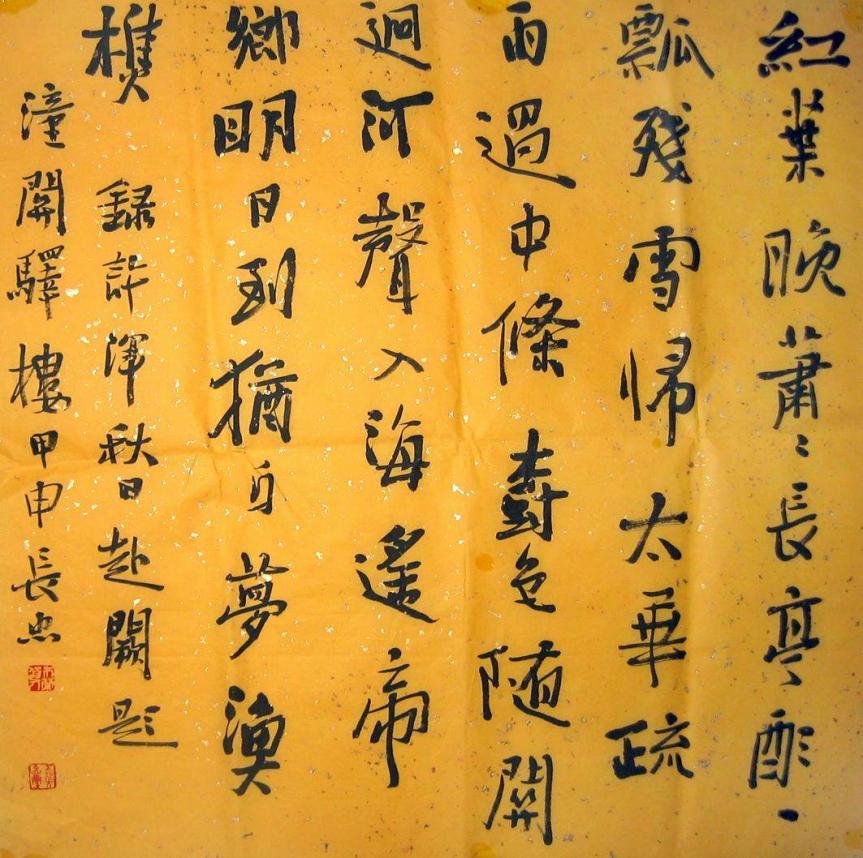 紅葉晚蕭〻長亭一
瓢殘雪帰太華疏
雨過中條樹色随關
迥河聲入海遙帝
鄉明日到猶自夢漁
樵 録許渾秋日赴闕題
潼關驛樓甲申長忠